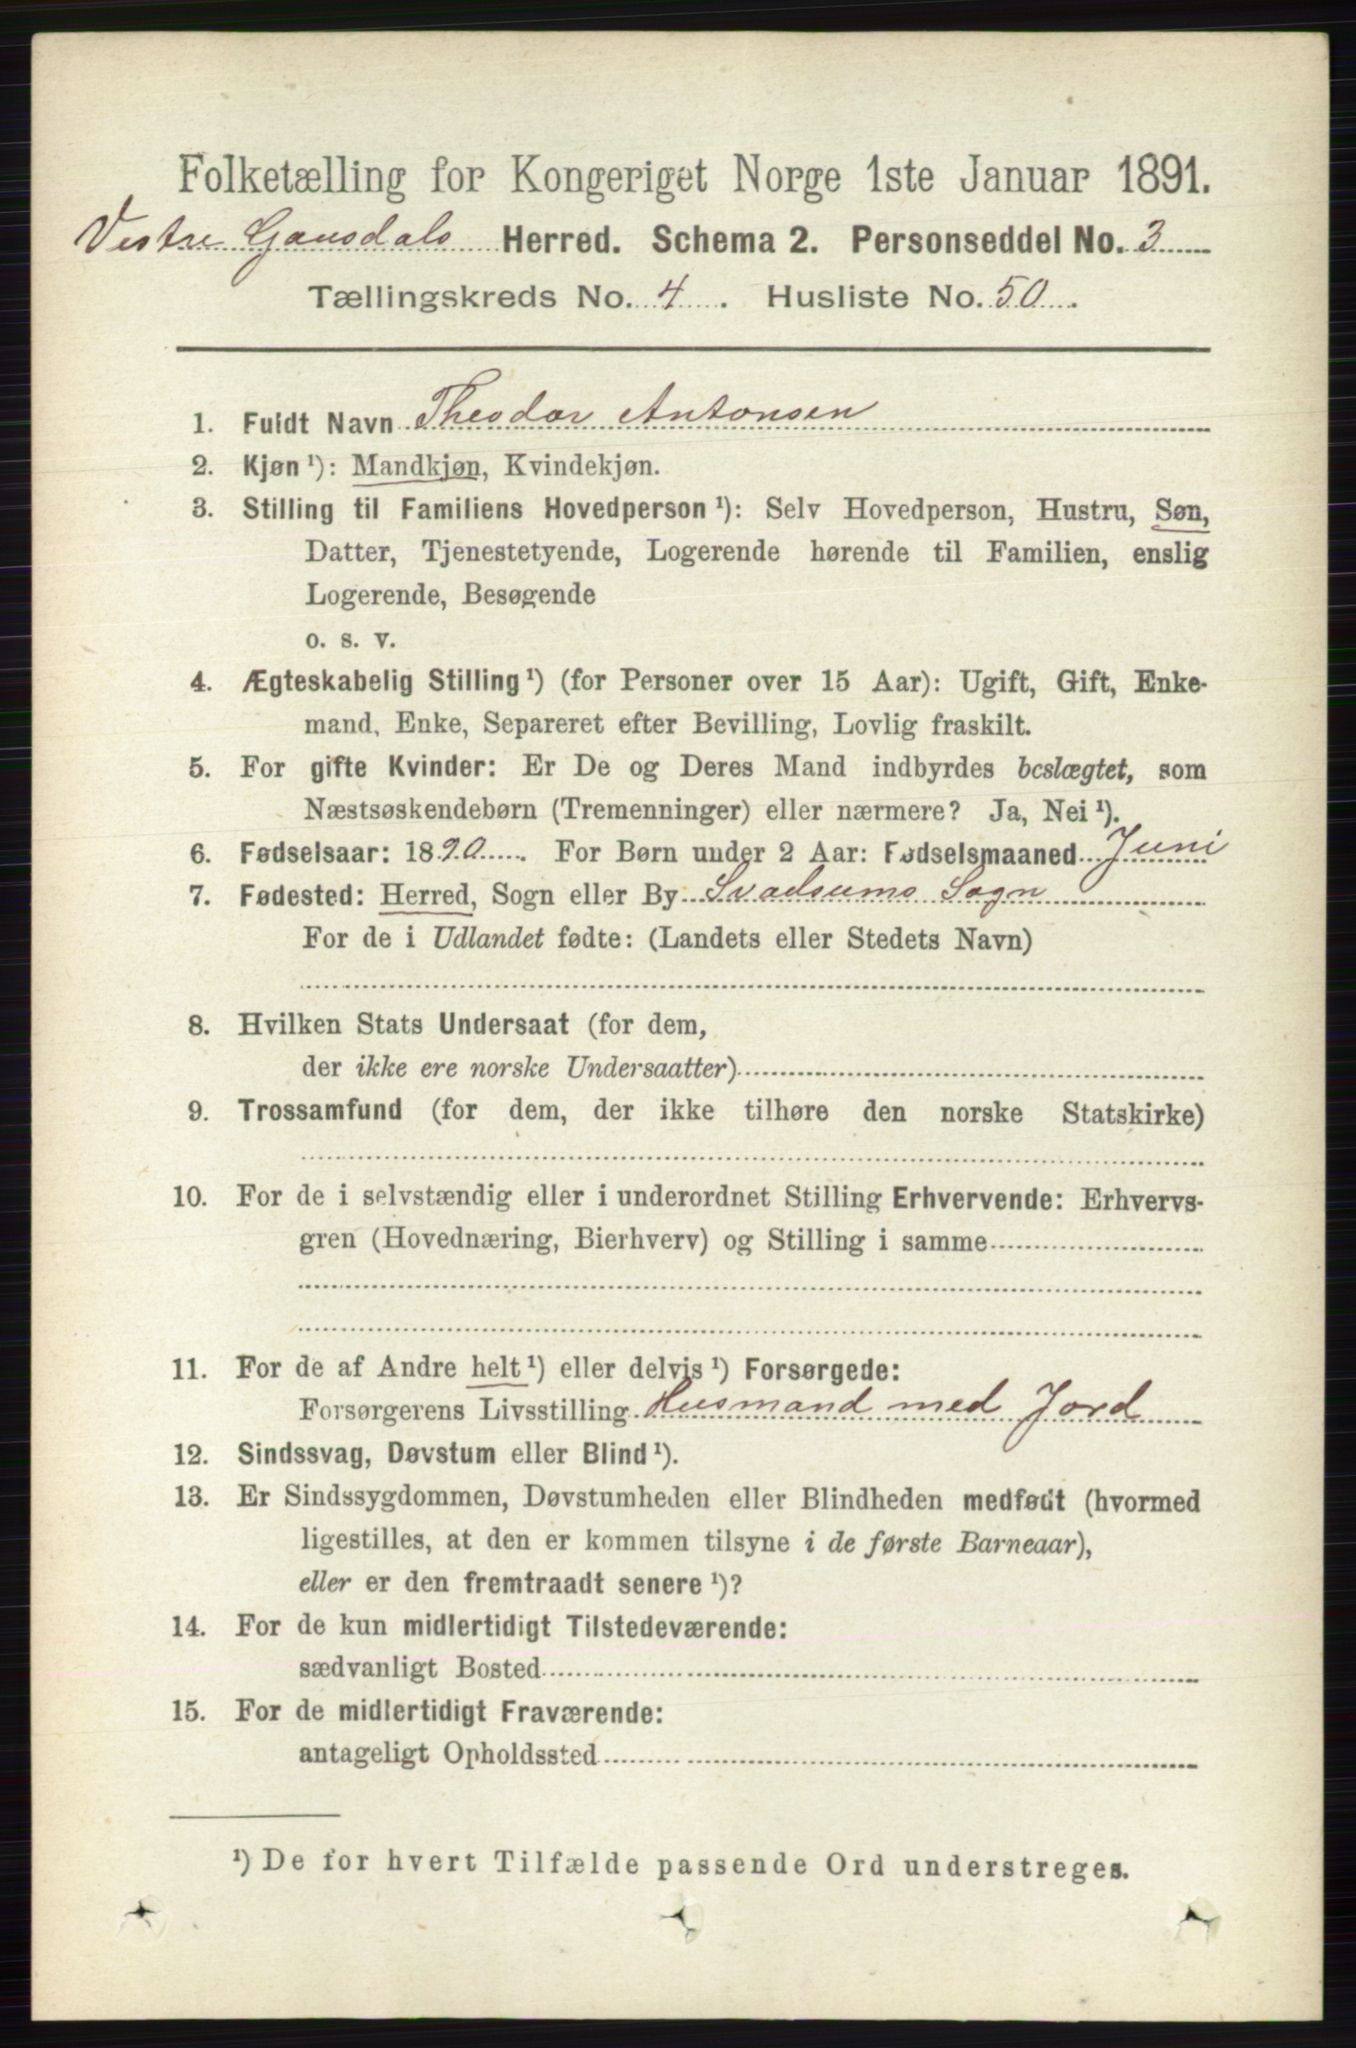 Folketælling for Kongeriget Norge 1ste Januar 1891.
Vestre Gausdals Herred. Schema 2. Personseddel No. 3
Tællingskreds No. 4. Husliste No. 50.
1. Fuldt Navn Theodor Antonsen
2. Kjøn ¹): Mandkjøn, Kvindekjøn.
3. Stilling til Familiens Hovedperson ¹): Selv Hovedperson, Hustru, Søn,
Datter, Tjenestetyende, Logerende hørende til Familien, enslig
Logerende, Besøgende
o. s. v.
4. Ægteskabelig Stilling ¹) (for Personer over 15 Aar): Ugift, Gift, Enke-
mand, Enke, Separeret efter Bevilling, Lovlig fraskilt.
5. For gifte Kvinder: Er De og Deres Mand indbyrdes beslægtet, som
Næstsøskendebørn (Tremenninger) eller nærmere? Ja, Nei ¹).
6. Fødselsaar: 1890. For Børn under 2 Aar: Fødselsmaaned Juni
7. Fødested: Herred, Sogn eller By Svadsums Sogn
For de i Udlandet fødte: (Landets eller Stedets Navn)
8. Hvilken Stats Undersaat (for dem,
der ikke ere norske Undersaatter)
9. Trossamfund (for dem, der ikke tilhøre den norske Statskirke)
10. For de i selvstændig eller i underordnet Stilling Erhvervende: Erhvervs-
gren (Hovednæring, Bierhverv) og Stilling i samme
11. For de af Andre helt ¹) eller delvis ¹) Forsørgede:
Forsørgerens Livsstilling Husmand med Jord
12. Sindssvag, Døvstum eller Blind ¹).
13. Er Sindssygdommen, Døvstumheden eller Blindheden medfødt (hvormed
ligestilles, at den er kommen tilsyne i de første Barneaar),
eller er den fremtraadt senere ¹)?
14. For de kun midlertidigt Tilstedeværende:
sædvanligt Bosted
15. For de midlertidigt Fraværende:
antageligt Opholdssted
¹) De for hvert Tilfælde passende Ord understreges.